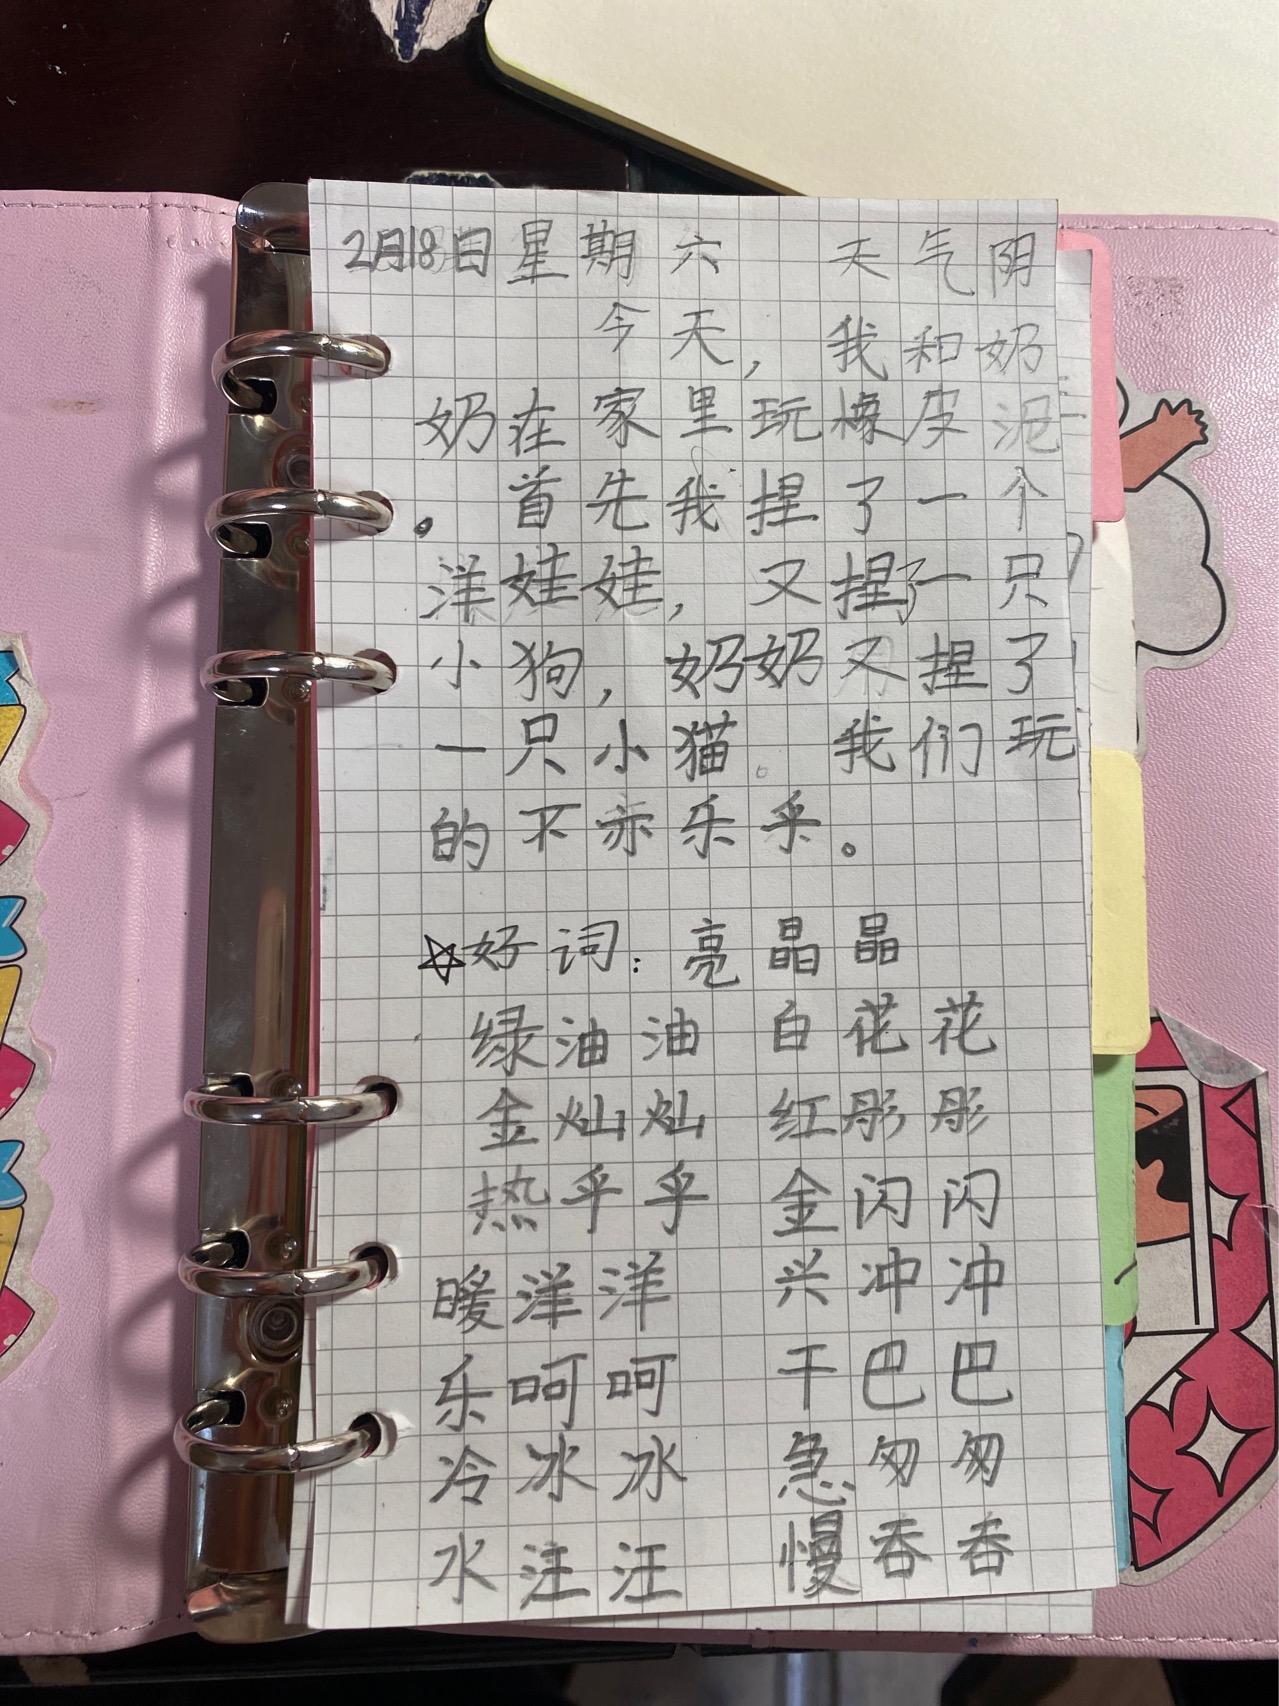 2月18日星期六 天气阴
今天，我和奶
奶在家里玩橡皮泥
。首先我捏了一个
洋娃娃，又捏了一只
小狗，奶奶又捏了
一只小猫。我们玩
的不亦乐乎。
☆好词：亮晶晶
绿油油 白花花
金灿灿 红彤彤
热乎乎 金闪闪
暖洋洋 兴冲冲
乐呵呵 干巴巴
冷冰冰 急匆匆
水汪汪 慢吞吞